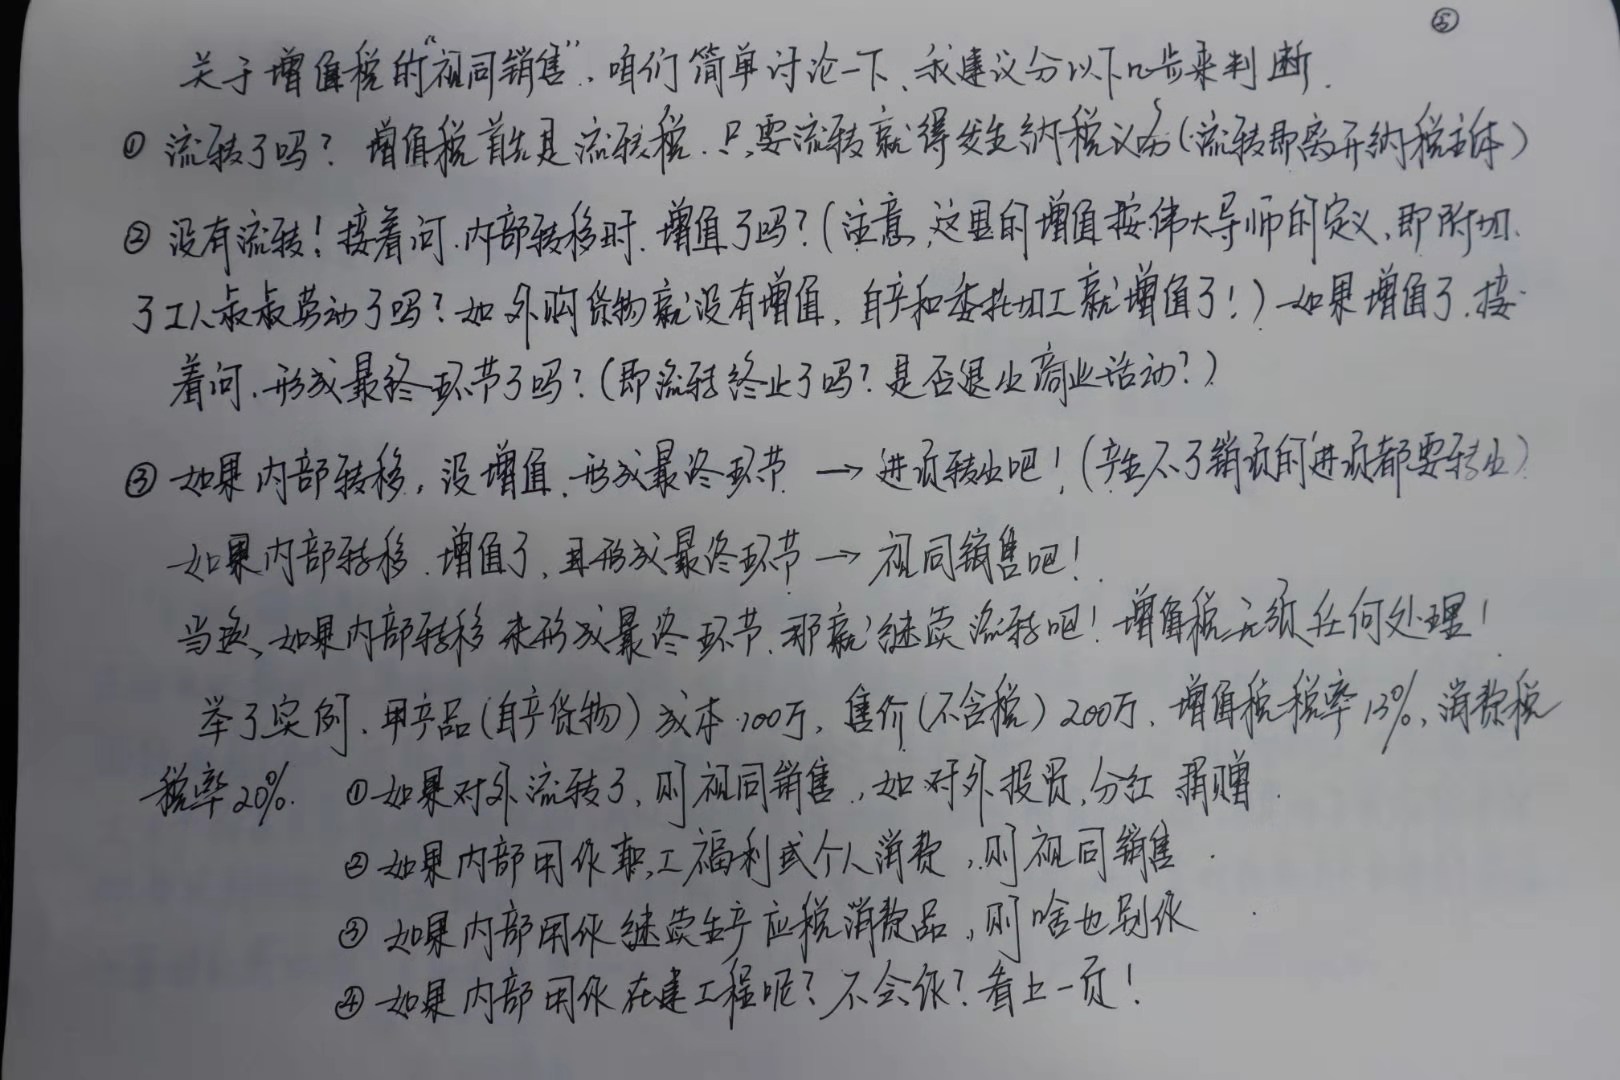 ⑤
关于增值税的“视同销售”，咱们简单讨论一下，我建议分以下几步来判断.
① 流转了吗？增值税首先是流转税，只要流转就得发生纳税义务（流转即离开纳税主体）
② 没有流转！接着问，内部转移时，增值了吗？（注意，这里的增值按伟大导师的定义，即附加
了工人叔叔劳动了吗？如外购货物就没有增值，自产和委托加工就增值了！）如果增值了，接
着问，形成最终环节了吗？（即流转终止了吗？是否退出商业活动？）
③ 如果内部转移，没增值，形成最终环节 → 进项转出吧！（产生不了销项的进项都要转出）
如果内部转移，增值了，且形成最终环节 → 视同销售吧！
当然，如果内部转移未形成最终环节，那就继续流转吧！增值税无须任何处理！
举了实例，甲产品（自产货物）成本100万，售价（不含税）200万，增值税税率13%，消费税
税率20%. ①如果对外流转了，则视同销售，如对外投资，分红，捐赠.
②如果内部用作职工福利或个人消费，则视同销售.
③如果内部用作继续生产应税消费品，则啥也别作
④如果内部用作在建工程呢？不会作？看上一页！